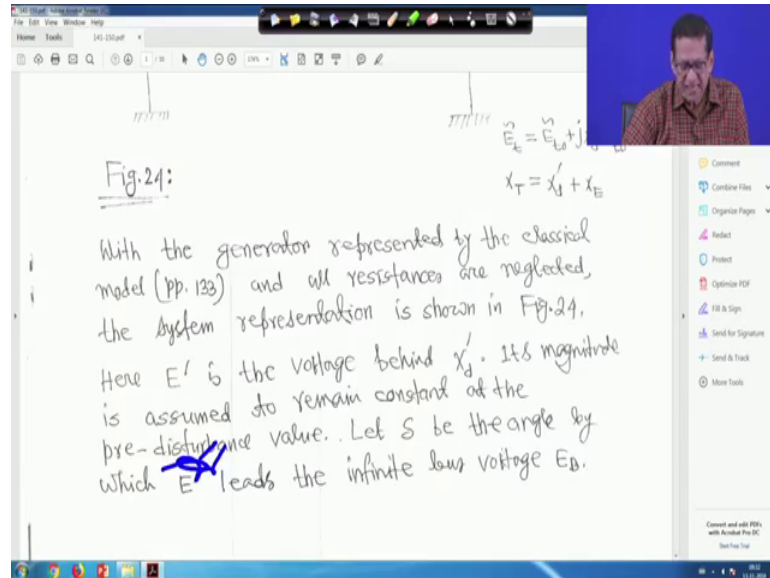 141-150.pdf - Adobe Acrobat Reader DC
File Edit View Window Help
Home Tools 141-150.pdf ×
Fig.24:
X_T = X'_d + X_E
With the generator represented by the classical
model (pp. 133) and all resistances are neglected,
the system representation is shown in Fig.24.
Here E' is the voltage behind X'_d. Its magnitude
is assumed to remain constant at the
pre-disturbance value.. Let δ be the angle by
which E' leads the infinite bus voltage E_B.
Comment
Combine Files
Organize Pages
Redact
Protect
Optimize PDF
Fill & Sign
Send for Signature
Send & Track
More Tools
Convert and edit PDFs
with Acrobat Pro DC
Start Free Trial